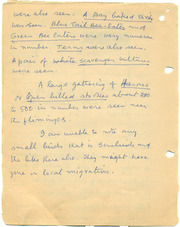 were also seen. A Bay backed Shrike
was seen. Blue Tail Bee-Eaters and
Green Bee Eaters were very numerous
in number. Terns were also seen.
A pair of white scavenger vultures
were seen.
A large gathering of
or Open billed storks about 200
to 500 in number were seen near
the flamingos.
I am unable to any
small birds that is Sunbirds and
the like there also. They might have
gone in local migration.